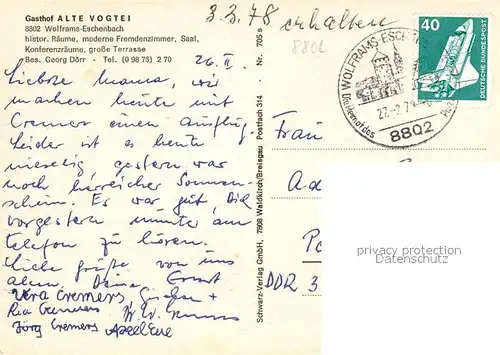 Gasthof ALTE VOGTEI
8802 Wolframs-Eschenbach
histor. Räume, moderne Fremdenzimmer, Saal,
Konferenzräume, große Terrasse
Bes. Georg Dörr - Tel. (0 98 75) 2 70
3.3.78 erhalten
8802
26. II.
Liebste Mama, wir
machen heute mit
Cremers einen Ausflug.
Leider ist es heute
nieselig, gestern war
noch herrlicher Sonnen-
schein. Es war gut, Dich
vorgestern munter am
Telefon zu hören.
Liebe Grüße von uns
allen. Deine Ernst
Vera Cremers,
Ria Cremers
Jörg Cremers
Schwarz-Verlag GmbH, 7808 Waldkirch/Breisgau Postfach 314 705 s
WOLFRAMS-ESCHENBACH
Heimat des
8802
40
DEUTSCHE BUNDESPOST
Frau
DDR 3
privacy protection
Datenschutz